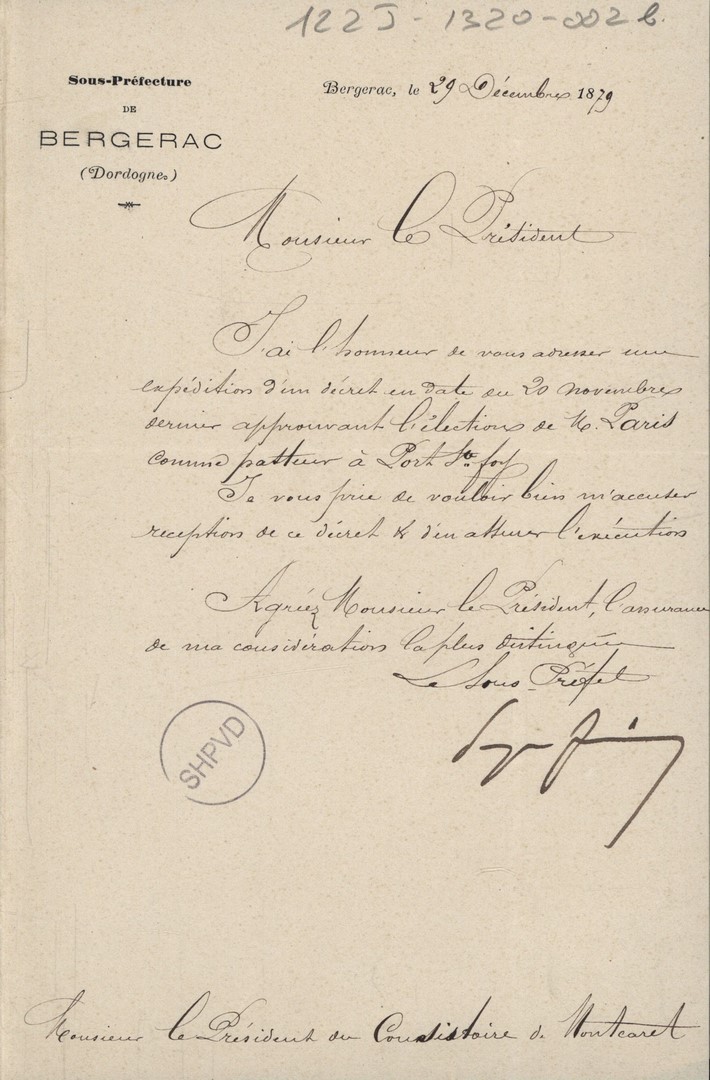 122J-1320-002 b.
Sous-Préfecture
DE
BERGERAC
(Dordogne.)
Bergerac, le 29 Décembre 1879
Monsieur le Président
J'ai l'honneur de vous adresser une
expédition d'un décret en date du 20 novembre
dernier approuvant l'élection de M. Paris
comme pasteur à Port Ste foy
Je vous prie de vouloir bien m'accuser
réception de ce décret & d'en assurer l'exécution
Agréez Monsieur le Président, l'assurance
de ma considération la plus distinguée
Le Sous-Préfet
SHPVD
Monsieur le Président du Consistoire de Montcaret